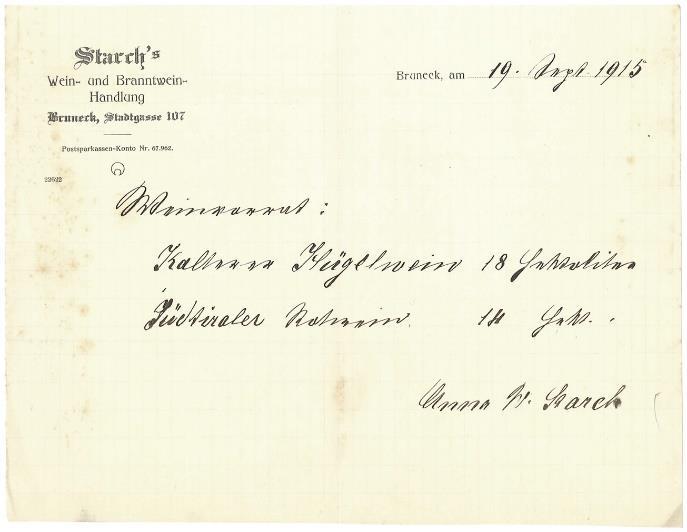 Starch's
Wein- und Branntwein-
Handlung
Bruneck, Stadtgasse 107
Postsparkassen-Konto Nr. 67.962.
22622
Bruneck, am 19. Sept 1915
Weinvorrat:
Kalterer Hüglwein 18 Hektoliter
Südtiraler Rotwein. 14 Hekt.
Anna W. Starch